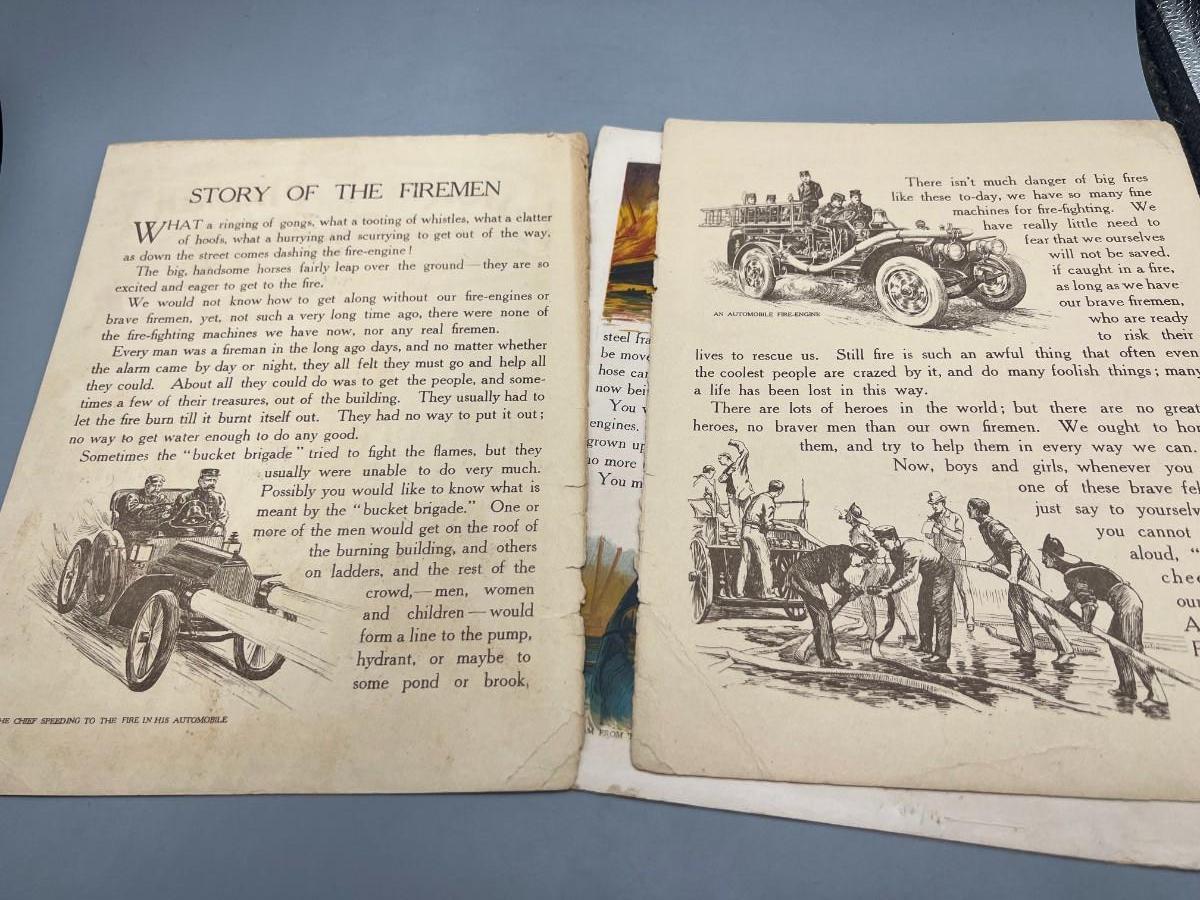 STORY OF THE FIREMEN
WHAT a ringing of gongs, what a tooting of whistles, what a clatter
of hoofs, what a hurrying and scurrying to get out of the way,
as down the street comes dashing the fire-engine!
The big, handsome horses fairly leap over the ground—they are so
excited and eager to get to the fire.
We would not know how to get along without our fire-engines or
brave firemen, yet, not such a very long time ago, there were none of
the fire-fighting machines we have now, nor any real firemen.
Every man was a fireman in the long ago days, and no matter whether
the alarm came by day or night, they all felt they must go and help all
they could. About all they could do was to get the people, and some-
times a few of their treasures, out of the building. They usually had to
let the fire burn till it burnt itself out. They had no way to put it out;
no way to get water enough to do any good.
Sometimes the "bucket brigade" tried to fight the flames, but they
usually were unable to do very much.
Possibly you would like to know what is
meant by the "bucket brigade." One or
more of the men would get on the roof of
the burning building, and others
on ladders, and the rest of the
crowd,—men, women
and children—would
form a line to the pump,
hydrant, or maybe to
some pond or brook,
HE CHIEF SPEEDING TO THE FIRE IN HIS AUTOMOBILE
steel fra
be move
hose car
now bei
You
engines.
grown up
no more
You m
M FROM
There isn't much danger of big fires
like these to-day, we have so many fine
machines for fire-fighting. We
have really little need to
fear that we ourselves
will not be saved,
if caught in a fire,
as long as we have
our brave firemen,
who are ready
to risk their
AN AUTOMOBILE FIRE-ENGINE
lives to rescue us. Still fire is such an awful thing that often even
the coolest people are crazed by it, and do many foolish things; many
a life has been lost in this way.
There are lots of heroes in the world; but there are no great
heroes, no braver men than our own firemen. We ought to hon
them, and try to help them in every way we can.
Now, boys and girls, whenever you
one of these brave fel
just say to yourselv
you cannot
aloud, "
chee
our
A